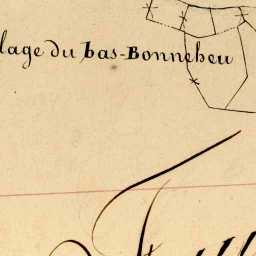 lage du bas-Bonneheu